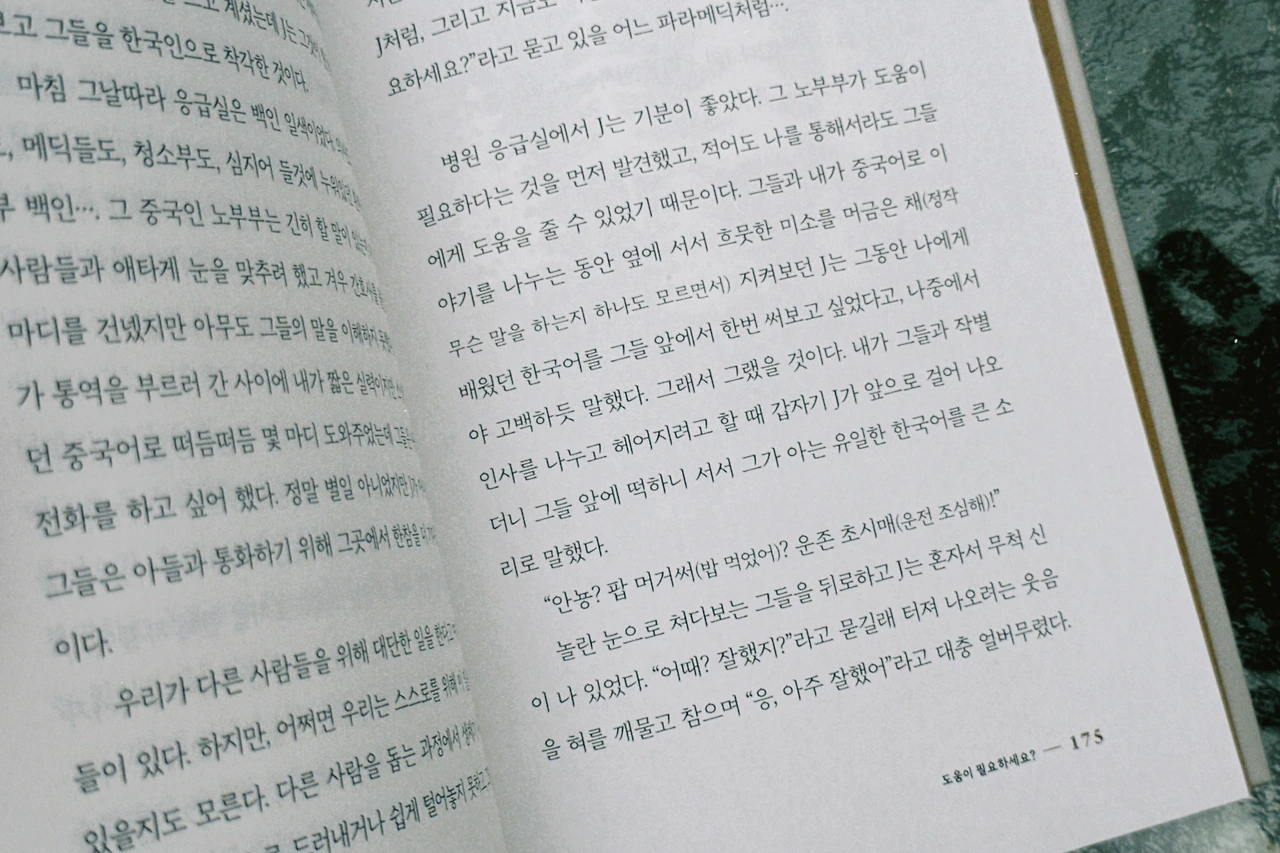 고 계셨는데 J는
보고 그들을 한국인으로 착각한 것이다.
마침 그날따라 응급실은 백인 일색이었다.
메딕들도, 청소부도, 심지어 들것에
백인…. 그 중국인 노부부는 긴히 할 말이
사람들과 애타게 눈을 맞추려 했고 겨우 간호사를
마디를 건넸지만 아무도 그들의 말을 이해하지
가 통역을 부르러 간 사이에 내가 짧은 실력이지만
던 중국어로 떠듬떠듬 몇 마디 도와주었는데
전화를 하고 싶어 했다. 정말 별일 아니었지만
그들은 아들과 통화하기 위해 그곳에서 한참을
이다.
우리가 다른 사람들을 위해 대단한 일을
들이 있다. 하지만, 어쩌면 우리는 스스로를 위해
있을지도 모른다. 다른 사람을 돕는 과정에서
드러내거나 쉽게 털어놓지 못하고
J처럼, 그리고 지금도
요하세요?”라고 묻고 있을 어느 파라메딕처럼….
병원 응급실에서 J는 기분이 좋았다. 그 노부부가 도움이
필요하다는 것을 먼저 발견했고, 적어도 나를 통해서라도 그들
에게 도움을 줄 수 있었기 때문이다. 그들과 내가 중국어로 이
야기를 나누는 동안 옆에 서서 흐뭇한 미소를 머금은 채(정작
무슨 말을 하는지 하나도 모르면서) 지켜보던 J는 그동안 나에게
배웠던 한국어를 그들 앞에서 한번 써보고 싶었다고, 나중에서
야 고백하듯 말했다. 그래서 그랬을 것이다. 내가 그들과 작별
인사를 나누고 헤어지려고 할 때 갑자기 J가 앞으로 걸어 나오
더니 그들 앞에 떡하니 서서 그가 아는 유일한 한국어를 큰 소
리로 말했다.
“안뇽? 팝 머거써(밥 먹었어)? 운존 초시매(운전 조심해)!”
놀란 눈으로 쳐다보는 그들을 뒤로하고 J는 혼자서 무척 신
이 나 있었다. “어때? 잘했지?”라고 묻길래 터져 나오려는 웃음
을 혀를 깨물고 참으며 “응, 아주 잘했어”라고 대충 얼버무렸다.
도움이 필요하세요? — 175